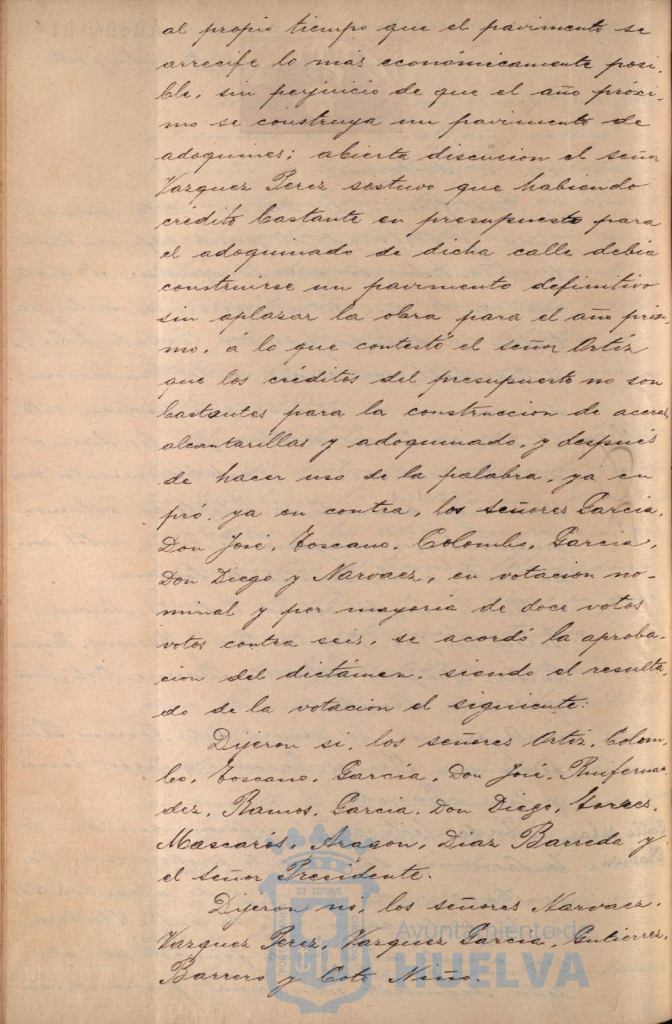 al propio tiempo que el pavimento se
arrecife lo más económicamente posi-
ble, sin perjuicio de que el año próxi-
mo se construya un pavimento de
adoquines; abierta discucion el señor
Vazquez Perez sostuvo que habiendo
crédito bastante en presupuesto para
el adoquinado de dicha calle debia
construirse un pavimento definitivo
sin aplazar la obra para el año próxi-
mo, á lo que contestó el señor Ortiz
que los créditos del presupuesto no son
bastantes para la construccion de aceras,
alcantarillas y adoquinado, y después
de hacer uso de la palabra, ya en
pró, ya en contra, los señores García,
Don José, Toscano, Colombo, Garcia,
Don Diego y Narvaez, en votacion no-
minal y por mayoría de doce votos
votos contra seis, se acordó la aproba-
cion del dictámen, siendo el resulta-
do de la votacion el siguiente:
Dijeron si, los señores Ortiz, Colom-
bo, Toscano, García, Don José, Ruifernan-
dez, Ramos, Garcia, Don Diego, Torres,
Mascarós, Aragon, Diaz Barreda y
el señor Presidente.
Dijeron no, los señores Narvaez,
Vazquez Perez, Vazquez Garcia, Gutierrez,
Barrero y Coto Niño.
Ayuntamiento de
HUELVA